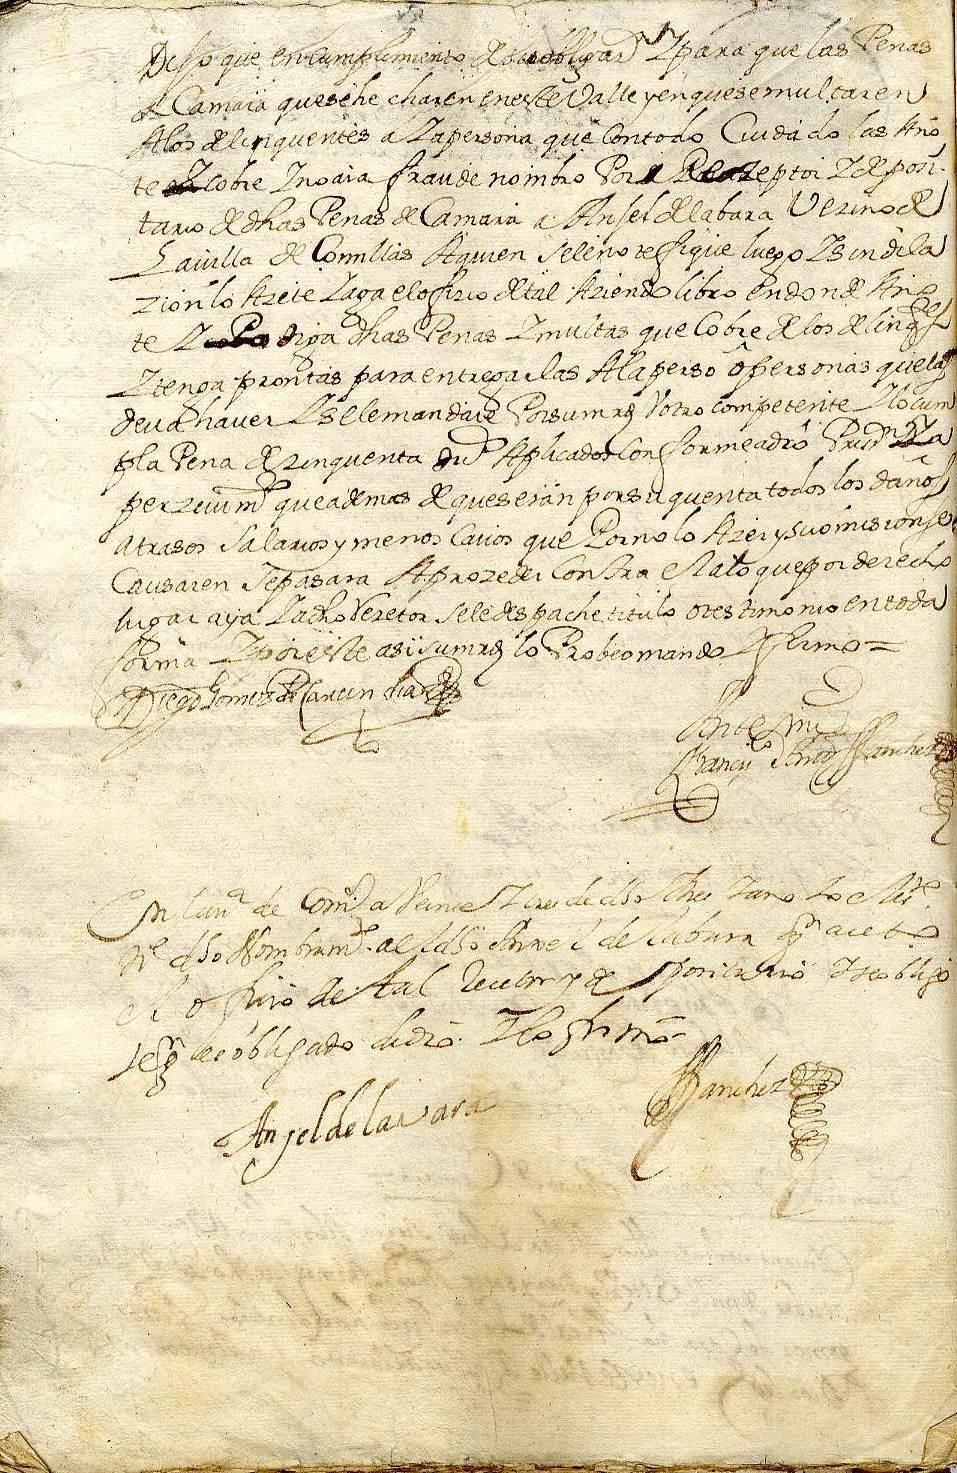 Dijo que en cumplimiento de su oblígaⁿ Y para que las Penas
de Camara que se he charen en este Valle y en que se multaren
A los delinquentes a Ya persona que Con todo Cuidado las Ano
te Y cobre Y no aia fraude nombro Por Rezeptor Y depossi
tario de dhas Penas de Camara a Anjel de labara Vezino de
La villa de Comillas A quien se le notefique luego Y sin dila
zion lo Azete Y aga el ofizio de tal Aziendo libro en donde Ano
te Y diga dhas Penas Y multas que Cobre de los delinqtes
Y tenga prontas para entregarlas A la perso o personas que las
deva haver Y se le mandare Por su mrd V otro competente Y lo cum
pla Pena de zinquenta ds Aplicados Con forme a dro
perzivimto que ademas de que seran por su quenta todos los daños
atrasos salarios y menos Cavos que Por no lo Azer y su omision se
Causaren se pasara A prozeder Contra el a lo que por derecho
lugar aya Y a dho Rezetor se le despache titulo o testimonio en toda
forma Y por este asi su mrd lo Probeo mando Y firmo =
Diego Gomez de Carandia
Ante mi
Franco Sanchez
En la va de Coms a Veinte Y tres de dho mes Y año Yo el
no dho Nombramto al dho Anjel de labara qn aceto
el ofizio de tal Recetor y de positario Y se obligo
a lo obligado de dro. Y lo firmo
Anjel de la vara
Sanchez